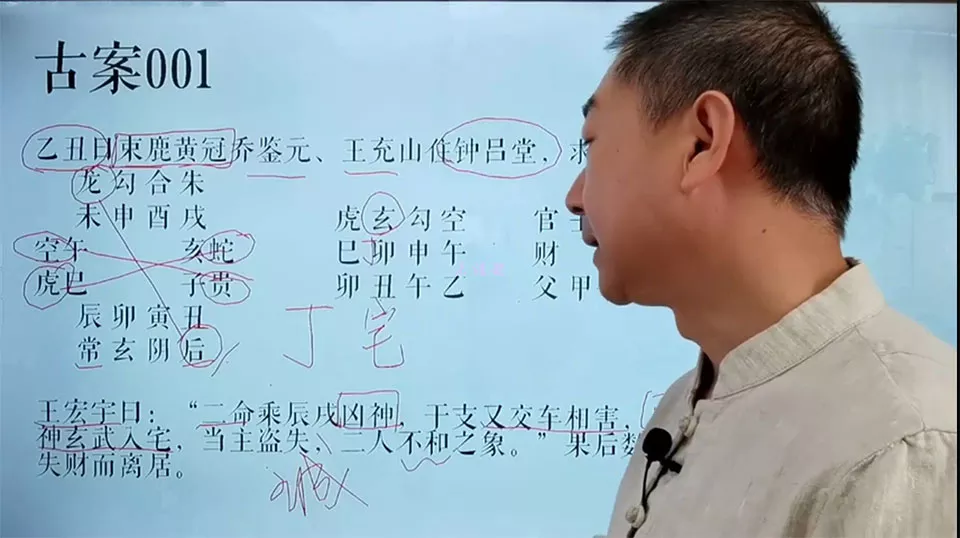 古案001
乙丑日束鹿黄冠乔鉴元、王充山住钟吕堂，求
龙勾合朱
未申酉戌 虎玄勾空 官
空午 亥蛇 巳卯申午 财
虎巳 子贵 卯丑午乙 父甲
辰卯寅丑 丁宅
常玄阴后
王宏宇曰：“二命乘辰戌凶神，于支又交车相害，
神玄武入宅，当主盗失、二人不和之象。”果后数
失财而离居。